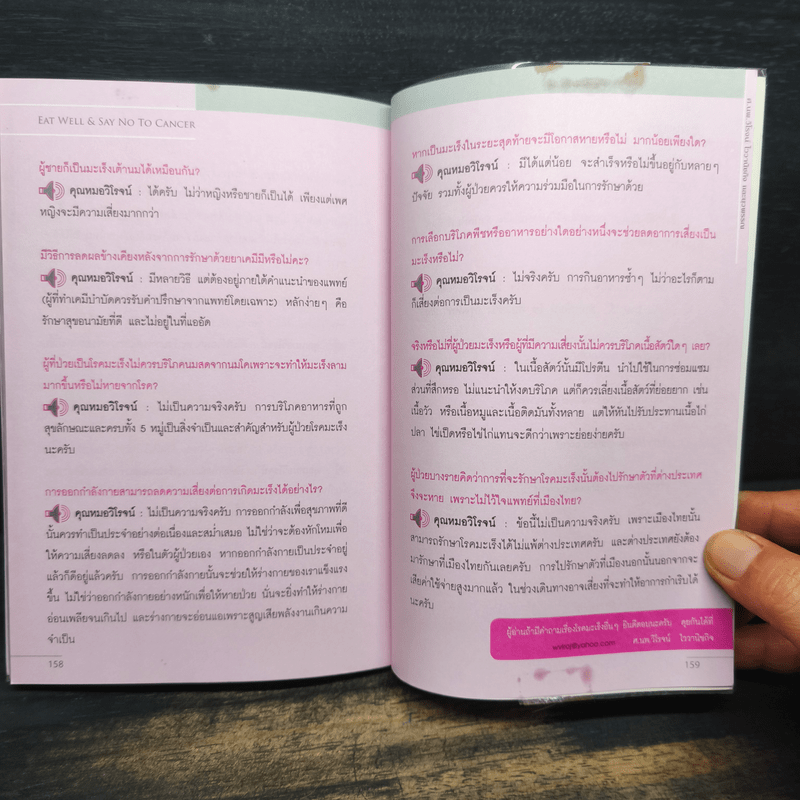 EAT WELL & SAY NO TO CANCER
ผู้ชายก็เป็นมะเร็งเต้านมได้เหมือนกัน?
คุณหมอวิโรจน์ : ได้ครับ ไม่ว่าหญิงหรือชายก็เป็นได้ เพียงแต่เพศ
หญิงจะมีความเสี่ยงมากกว่า
มีวิธีการลดผลข้างเคียงหลังจากการรักษาด้วยยาเคมีมีหรือไม่คะ?
คุณหมอวิโรจน์ : มีหลายวิธี แต่ต้องอยู่ภายใต้คำแนะนำของแพทย์
(ผู้ที่ทำเคมีบำบัดควรรับคำปรึกษาจากแพทย์โดยเฉพาะ) หลักง่ายๆ คือ
รักษาสุขอนามัยที่ดี และไม่อยู่ในที่แออัด
ผู้ที่ป่วยเป็นโรคมะเร็งไม่ควรบริโภคนมสดจากนมโคเพราะจะทำให้มะเร็งลาม
มากขึ้นหรือไม่หายจากโรค?
คุณหมอวิโรจน์ : ไม่เป็นความจริงครับ การบริโภคอาหารที่ถูก
สุขลักษณะและครบทั้ง 5 หมู่เป็นสิ่งจำเป็นและสำคัญสำหรับผู้ป่วยโรคมะเร็ง
นะครับ
การออกกำลังกายสามารถลดความเสี่ยงต่อการเกิดมะเร็งได้อย่างไร?
คุณหมอวิโรจน์ : ไม่เป็นความจริงครับ การออกกำลังเพื่อสุขภาพที่ดี
นั้นควรทำเป็นประจำอย่างต่อเนื่องและสม่ำเสมอ ไม่ใช่ว่าจะต้องหักโหมเพื่อ
ให้ความเสี่ยงลดลง หรือในตัวผู้ป่วยเอง หากออกกำลังกายเป็นประจำอยู่
แล้วก็ดีอยู่แล้วครับ การออกกำลังกายนั้นจะช่วยให้ร่างกายของเราแข็งแรง
ขึ้น ไม่ใช่ว่าออกกำลังกายอย่างหนักเพื่อให้หายป่วย นั่นจะยิ่งทำให้ร่างกาย
อ่อนเพลียจนเกินไป และร่างกายจะอ่อนแอเพราะสูญเสียพลังงานเกินความ
จำเป็น
158
หากเป็นมะเร็งในระยะสุดท้ายจะมีโอกาสหายหรือไม่ มากน้อยเพียงใด?
คุณหมอวิโรจน์ : มีได้แต่น้อย จะสำเร็จหรือไม่ขึ้นอยู่กับหลายๆ
ปัจจัย รวมทั้งผู้ป่วยควรให้ความร่วมมือในการรักษาด้วย
การเลือกบริโภคพืชหรืออาหารอย่างใดอย่างหนึ่งจะช่วยลดอาการเสี่ยงเป็น
มะเร็งหรือไม่?
คุณหมอวิโรจน์ : ไม่จริงครับ การกินอาหารซ้ำๆ ไม่ว่าอะไรก็ตาม
ก็เสี่ยงต่อการเป็นมะเร็งครับ
จริงหรือไม่ที่ผู้ป่วยมะเร็งหรือผู้ที่มีความเสี่ยงนั้นไม่ควรบริโภคเนื้อสัตว์ใดๆ เลย?
คุณหมอวิโรจน์ : ในเนื้อสัตว์นั้นมีโปรตีน นำไปใช้ในการซ่อมแซม
ส่วนที่สึกหรอ ไม่แนะนำให้งดบริโภค แต่ก็ควรเลี่ยงเนื้อสัตว์ที่ย่อยยาก เช่น
เนื้อวัว หรือเนื้อหมูและเนื้อติดมันทั้งหลาย แต่ให้หันไปรับประทานเนื้อไก่
ปลา ไข่เป็ดหรือไข่ไก่แทนจะดีกว่าเพราะย่อยง่ายครับ
ผู้ป่วยบางรายคิดว่าการที่จะรักษาโรคมะเร็งนั้นต้องไปรักษาตัวที่ต่างประเทศ
จึงจะหาย เพราะไม่ไว้ใจแพทย์ที่เมืองไทย?
คุณหมอวิโรจน์ : ข้อนี้ไม่เป็นความจริงครับ เพราะเมืองไทยนั้น
สามารถรักษาโรคมะเร็งได้ไม่แพ้ต่างประเทศครับ และต่างประเทศยังต้อง
มารักษาที่เมืองไทยกันเลยครับ การไปรักษาตัวที่เมืองนอกนั้นนอกจากจะ
เสียค่าใช้จ่ายสูงมากแล้ว ในช่วงเดินทางอาจเสี่ยงที่จะทำให้อาการกำเริบได้
นะครับ
ผู้อ่านถ้ามีคำถามเรื่องโรคมะเร็งอื่นๆ ยินดีตอบนะครับ คุยกันได้ที่
ศ.นพ.วิโรจน์ ไววานิชกิจ
159